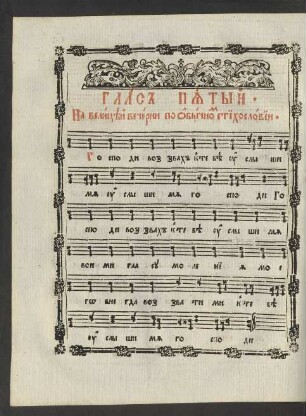 ГЛАСЪ ПѦТЫЙ.
На вели́цѣй вече́рни по Ѻбы́чно́мъ стїхосло́вїи.
Го спо ди воз звахъ к̾те бѣ ѹ слы ши
мѧ ѹ слы ши мѧ го спо ди Го
спо ди воз звахъ к̾те бѣ ѹ слы ши мѧ
вон ми гла су мо ле нї ѧ мо е
гѡ вне гда воз зва ти ми к̾те бѣ
ѹ слы ши мѧ го спо ди